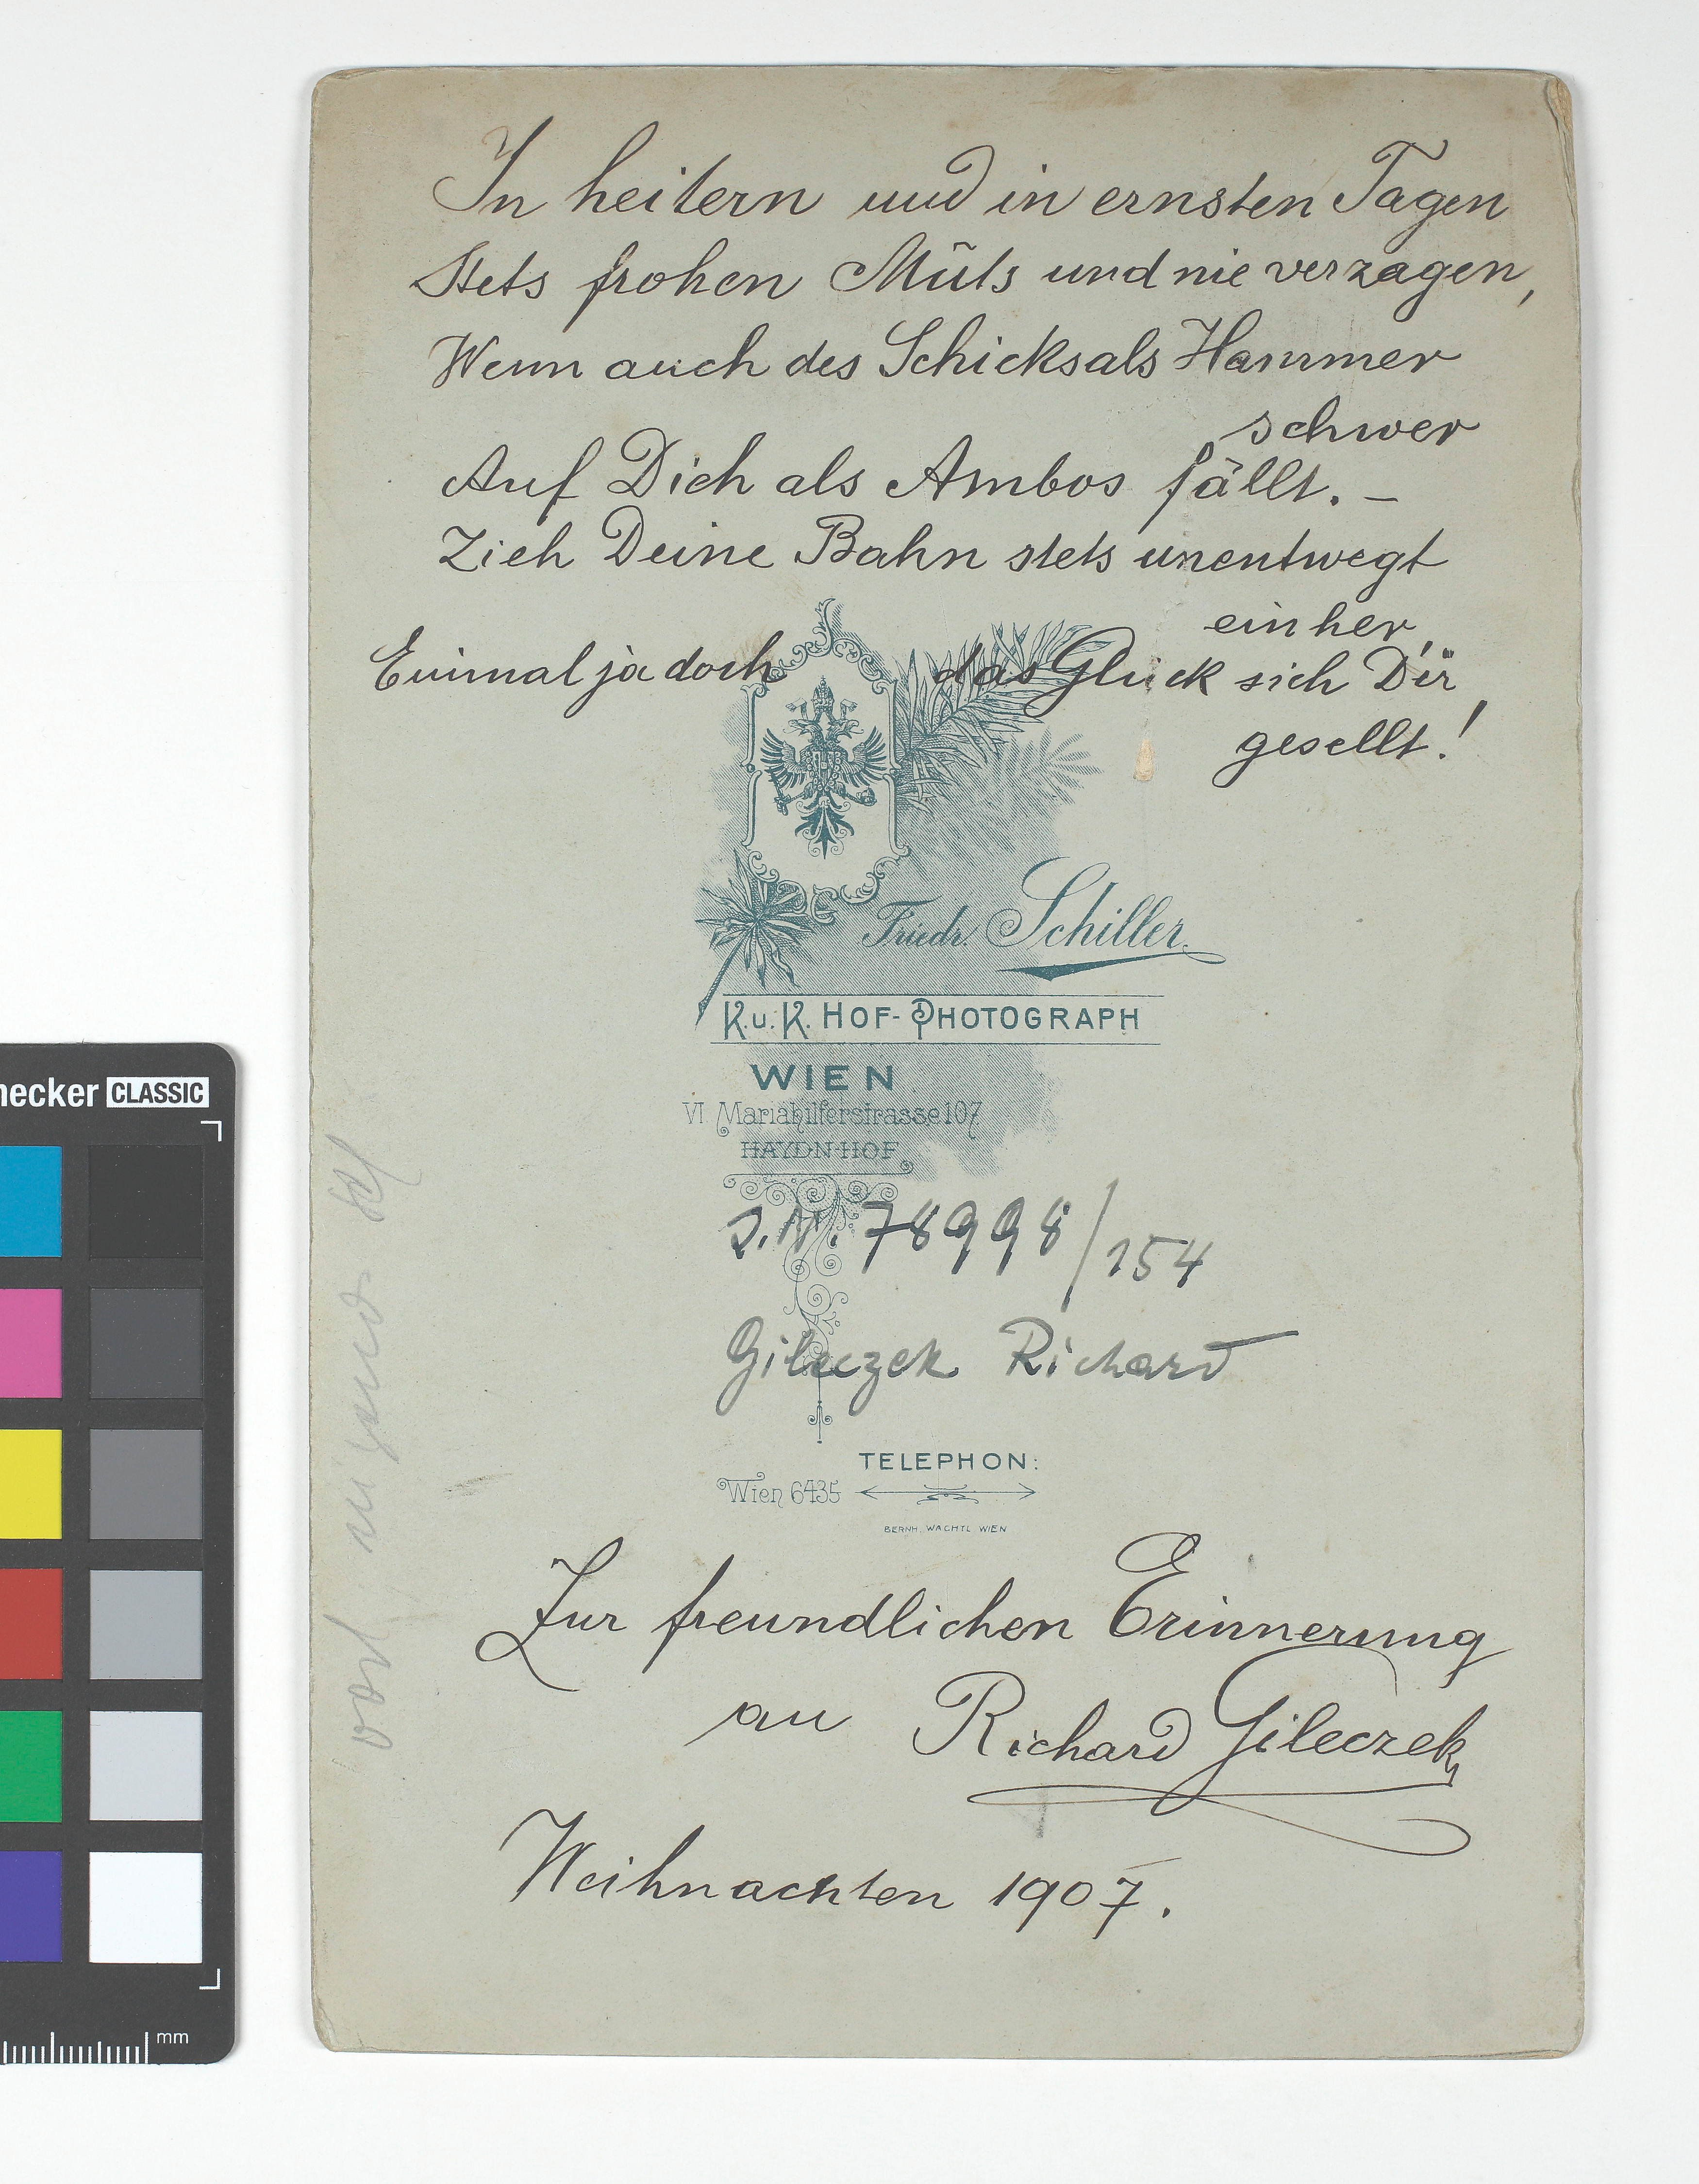 In heitern und in ernsten Tagen
Stets frohen Mūts und nie verzagen,
Wenn auch des Schicksals Hammer
schwer
Auf Dich als Ambos fällt. –
Zieh Deine Bahn stets unentwegt
einher,
Einmal ja doch das Glück sich Dir
gesellt!
Friedr. Schiller
K.u.K. HOF-PHOTOGRAPH
WIEN
VI Mariahilferstrasse 107
HAYDN-HOF
J.N. 78998/154
Gileczek Richard
TELEPHON:
Wien 6435
BERNH. WACHTL WIEN
Zur freundlichen Erinnerung
an Richard Gileczek
Weihnachten 1907.
necker CLASSIC
mm